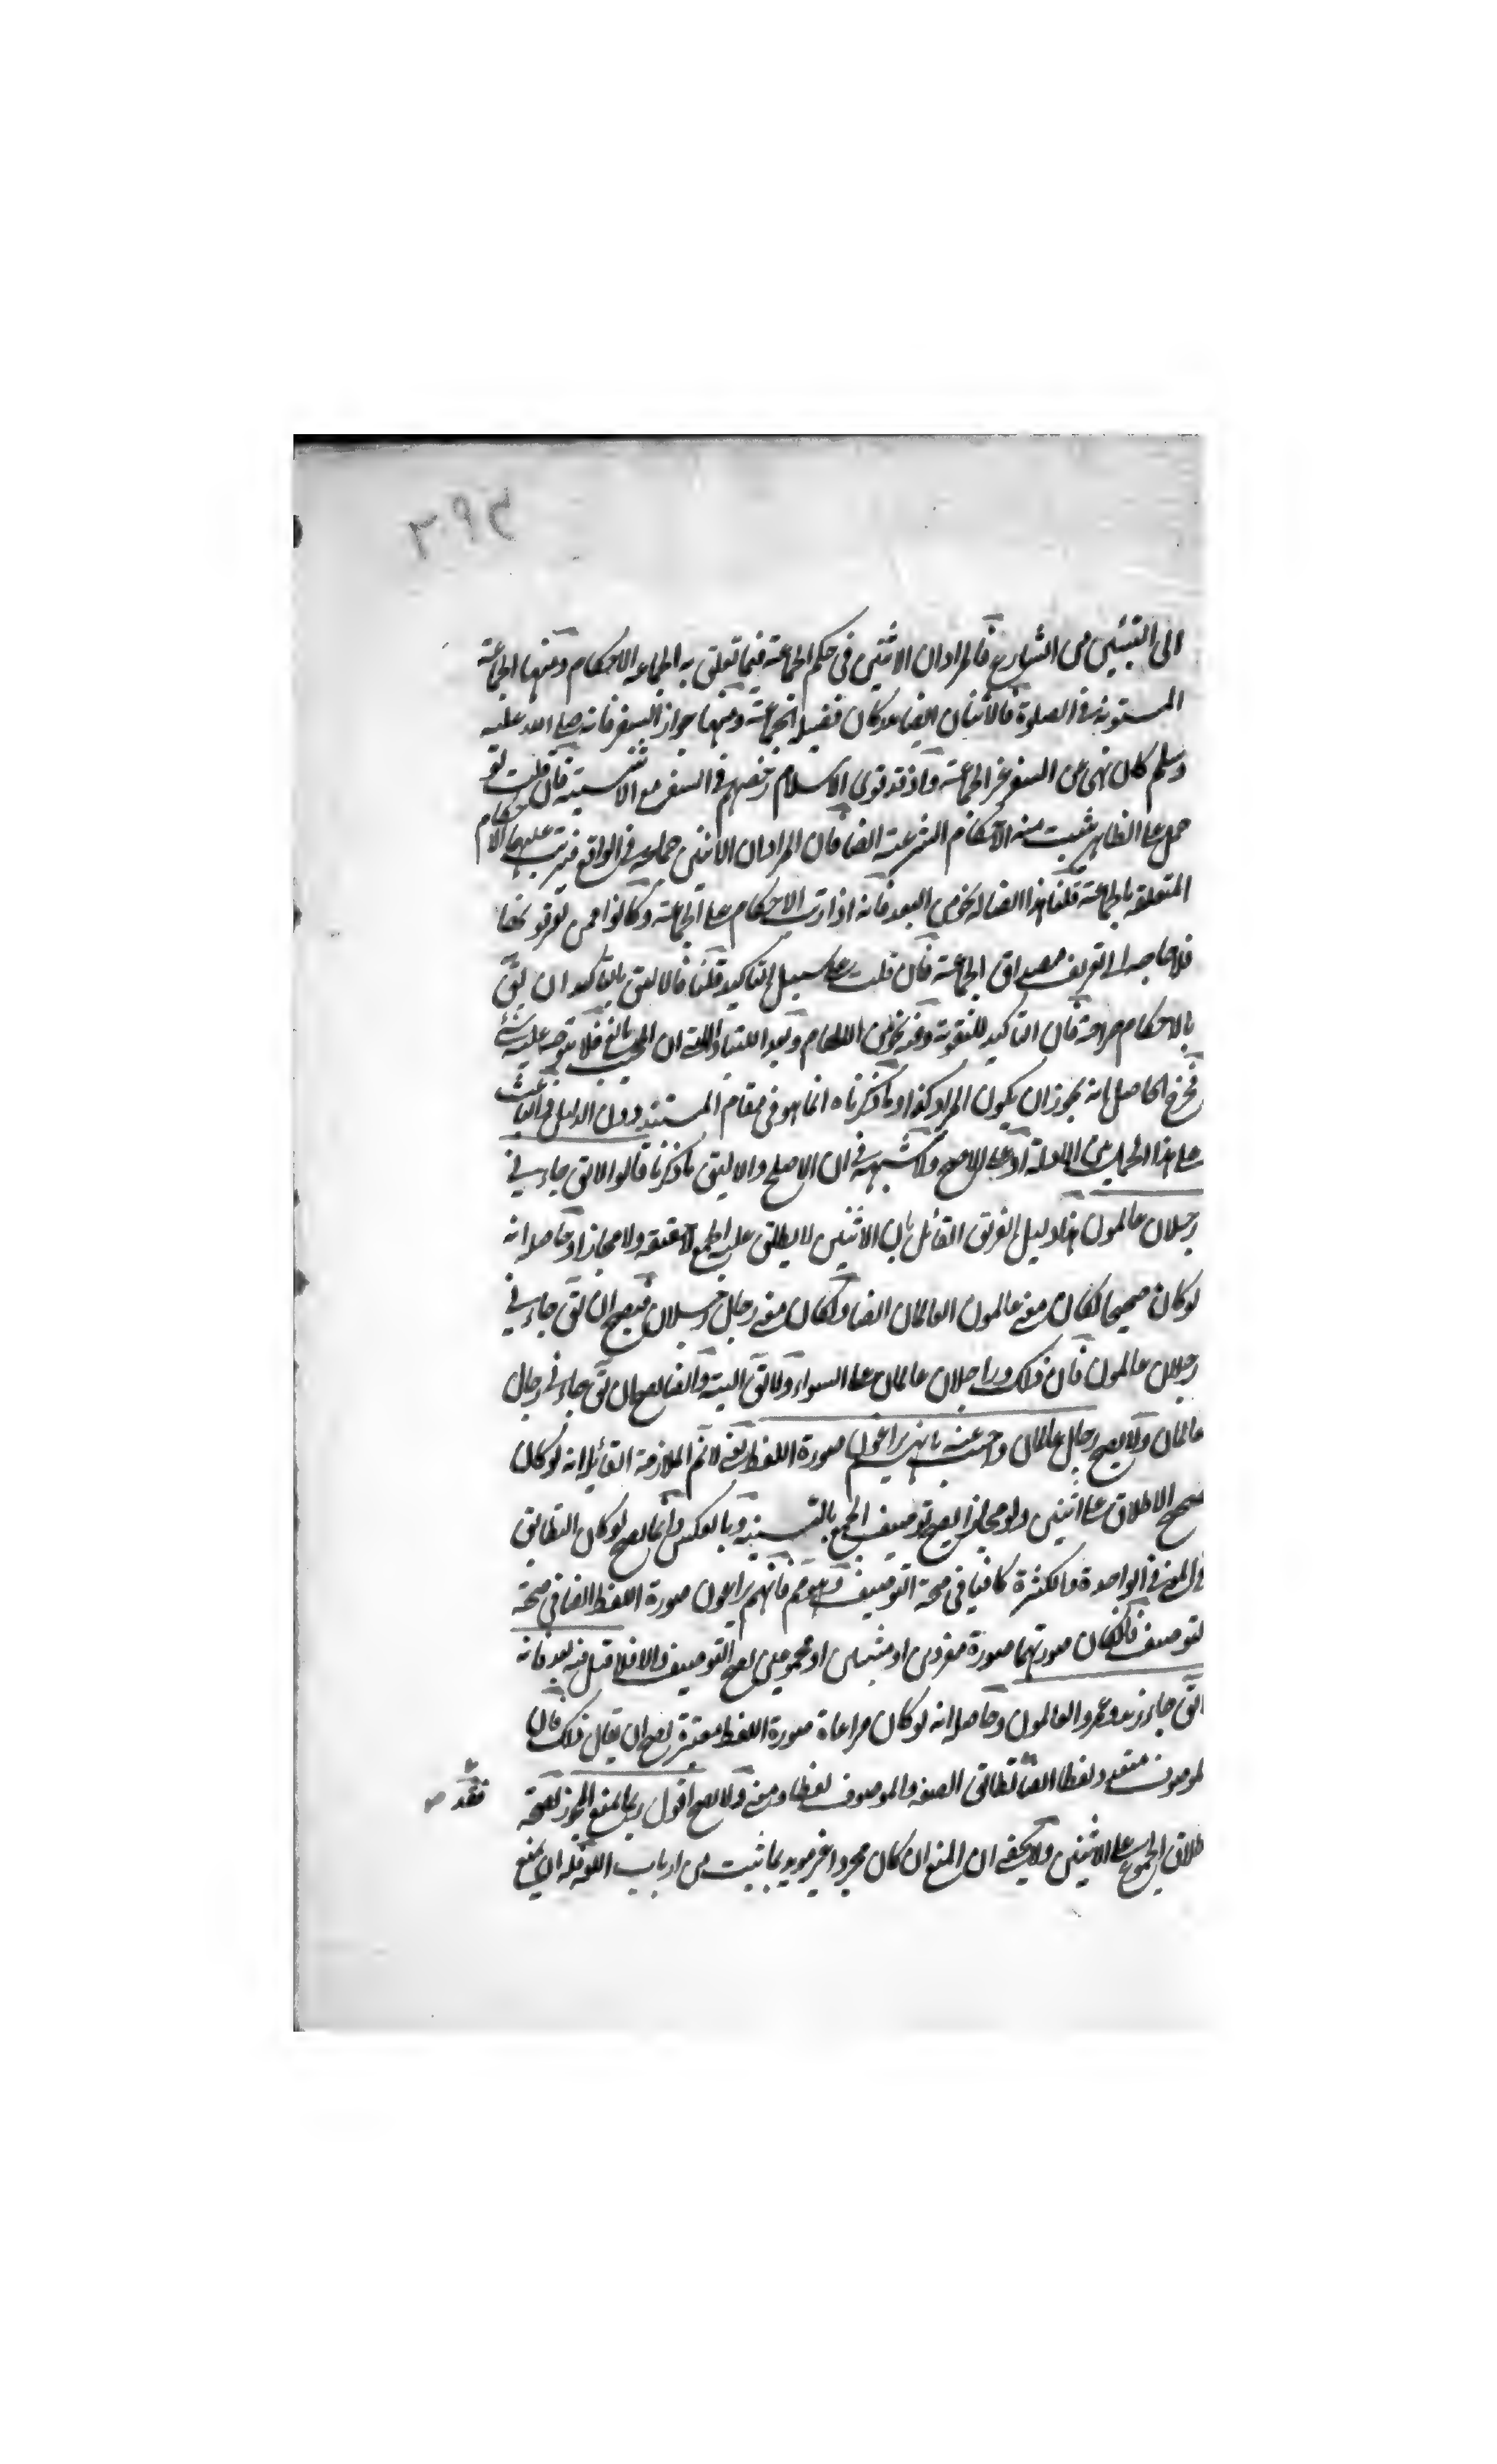 ٣٩٣
الى التبيين من الشارع فالمراد ان الاثنين فى حكم الجماعة فيما تعلق به الجماعة الاحكام ومنها الجماعة
المسنونة فى الصلوة فالاثنان ايضا عد كان فضيلة الجماعة ومنها جواز السفر فانه صلى الله عليه
وسلم كان نهى عن السفر غير الجماعة واذ قد قوى الاسلام رخصهم فى السفر مع الاثنينية فان قلت لو
حمل على الظاهر يثبت منه الاحكام الشرعية ايضا فان المراد ان الاثنين جماعة فى الواقع فيترتب عليهما الاحكام
المتعلقة بالجماعة قلنا هذا ايضا له نحو من البعد فانه اذا رتب الاحكام على الجماعة وكانوا ممن يعرفونها
فلا حاجة الى تعريف مصداق الجماعة فان قلت على سبيل التاكيد قلنا فالاليق بالتاكيد ان يق
بالاحكام صراحة فان التاكيد للتقوية وفيه نحو من الابهام وبعد اللتيا والتى ان المجيب مانع فلا يتوجه عليه شئ
فرجع الحاصل انه يجوز ان يكون المراد كذا وما ذكرناه انما هو فى مقام المستند دون الدليل والباعث
على هذا الحمل من الادلة او على الاصح ولا شبهة فى ان الاصلح والاليق ما ذكرنا قالوا لا يق جاءنى
رجلان عالمون هذا دليل الفريق القائل بان الاثنين لا يطلق عليه الجمع لا حقيقة ولا مجازا وحاصله انه
لو كان صحيحا لكان معنى عالمون العالمان ايضا ولكان معنى رجال رجلان فيصح ان يق جاءنى
رجلان عالمون فان ذلك ورجلان عالمان على السواء ولا يق البتة وايضا يصح ان يق جاءنى رجال
عالمان ولا يصح رجال عالمان واجيب عنه بانهم يراعون صورة اللفظ يعنى لا نم الملازمة القائلة انه لو كان
صحيح الاطلاق على اثنين ولو مجازا يصح توصيف الجمع بالتثنية وبالعكس وانما يصح لو كان التطابق
فى المعنى فى الواحدة والكثرة كافيا فى صحة التوصيف وهو مم فانهم يراعون صورة اللفظ ايضا فى صحة
لتوصيف فان كان صورتهما صورة مفردين او مثنيين او مجموعين يصح التوصيف والا فلا قيل فيه بعد فانه
لا يق جاء زيد وعمرو العالمون وحاصله انه لو كان مراعاة صورة اللفظ معتبرة يصح ان يقال ذلك فان
لموصوف متعدد لفظا ايضا فتطابق الصفة والموصوف لفظا ومعنى ولا يصح اقول ربما يمنع المجوز لصحة
طلاق الجموع على الاثنين ولا يخفى ان المنع ان كان مجردا غير مويد بما ثبت من ارباب اللغة فله ان يمنع
فقد صح